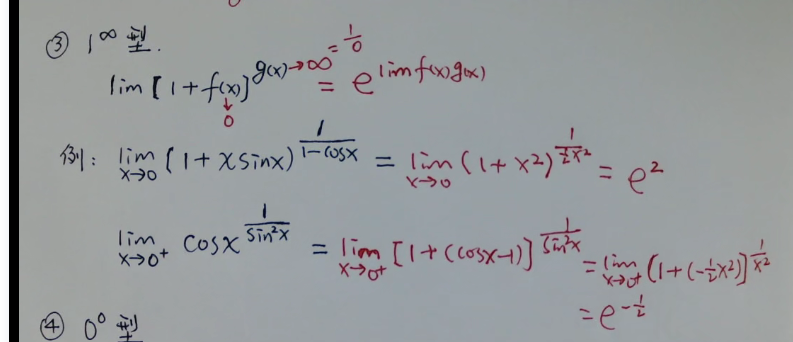 ③ 1^∞ 型.
lim [1+f(x)]^{g(x)→∞ = 1/0} = e^{lim f(x)g(x)}
↓
0
例: lim_{x→0} (1+xsinx)^{1/(1-cosx)} = lim_{x→0} (1+x²)^{1/(½x²)} = e²
lim_{x→0⁺} cosx^{1/sin²x} = lim_{x→0⁺} [1+(cosx-1)]^{1/sin²x} = lim_{x→0⁺} (1+(-½x²)]^{1/x²}
= e^{-½}
④ 0⁰ 型